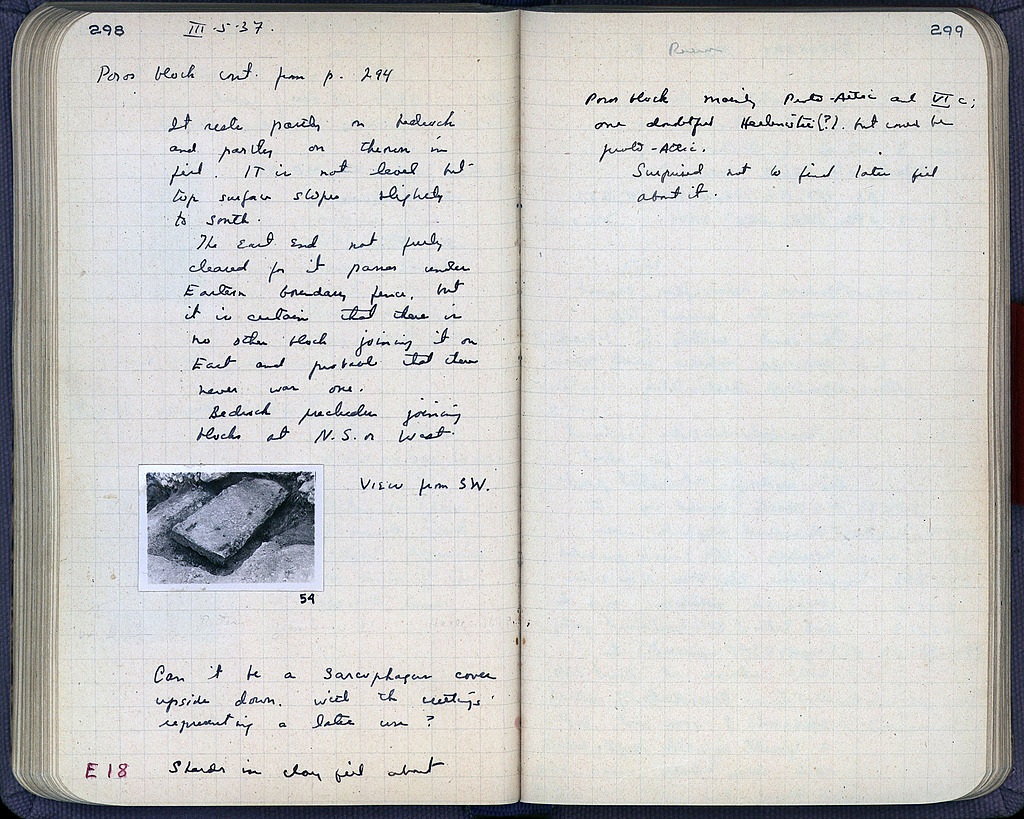 298
III-5-37.
Poros block cont. from p. 294
It rests partly on bedrock
and partly on thrown in
fill. IT is not level but
top surface slopes slightly
to south.
The East end not fully
cleared for it passes under
Eastern boundary fence, but
it is certain that there is
no other block joining it on
East and probable that there
never was one.
Bedrock precludes joining
blocks at N. S. or West.
View from SW.
54
Can it be a Sarcophagus cover
upside down, with the cuttings
representing a later use?
E 18 Sherds in clay fill about
299
Poros block mainly Proto-Attic and VI c;
one doubtful Hellenistic(?). but could be
proto-Attic.
Surprised not to find later fill
about it.